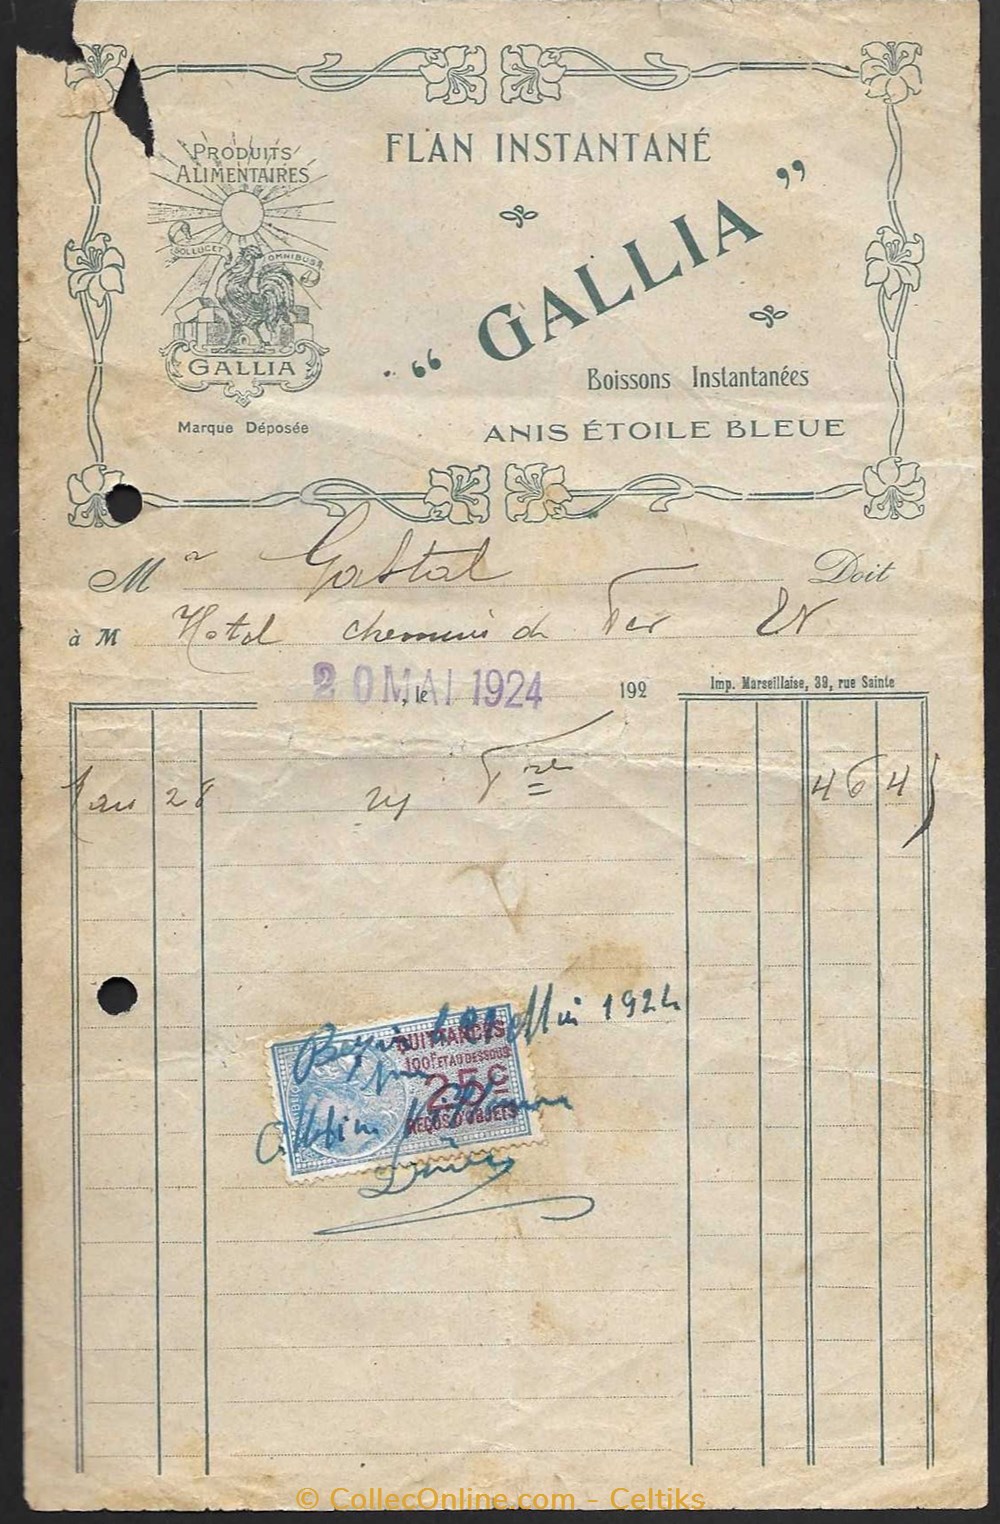 PRODUITS
ALIMENTAIRES
SOL LUCET OMNIBUS
GALLIA
Marque Déposée
FLAN INSTANTANÉ
" GALLIA "
Boissons Instantanées
ANIS ÉTOILE BLEUE
Mr Gastal Doit
à M Hotel chemins de Fer
20 MAI 1924, le 192
Imp. Marseillaise, 39, rue Sainte
28 464
1924
QUITTANCES
100F ET AU DESSOUS
25c
REÇUS D'OBJETS
© CollecOnline.com - Celtiks